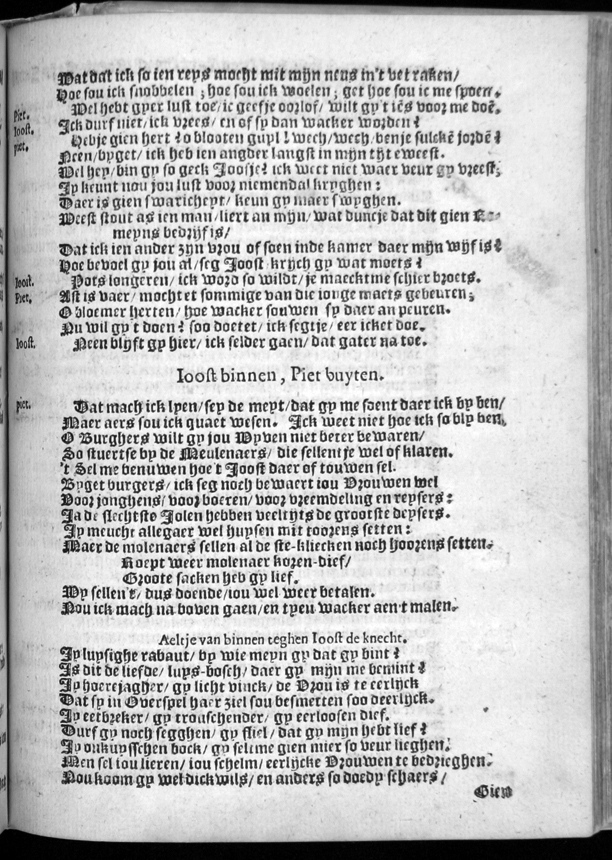 Wat dat ick so ien reys mocht mit mijn neus in't vet raken/
Hoe sou ick snobbelen ; hoe sou ick woelen; get hoe sou ic me spoen.
Piet. Wel hebt gyer lust toe/ ic geefje oorlof/ wilt gy't iēs voor me doē.
Ioost. Ick durf niet/ ick vrees/ en of sy dan wacker worden?
piet. Hebje gien hert? o blooten guyl! wech/wech/benje sulckē jordē?
Neen/byget/ ick heb ien angder langst in mijn tijt eweest.
Wel hey/bin gy so geck Joosje? ick weet niet waer veur gy vreest;
Jy keunt nou jou lust voor niemendal kryghen:
Daer is gien swaricheyt/ keun gy maer swyghen.
Weest stout as ien man/liert an mijn/wat duncje dat dit gien
meyns bedrijf is/
Dat ick ien ander zijn vrou of soen inde kamer daer mijn wijf is?
Hoe bevoel gy jou al/seg Joost krijch gy wat moets?
Ioost. Pots longeren/ ick word so wildt/je maecktme schier broets.
Piet. Ast is vaer/ mochtet sommige van die ionge maets gebeuren;
O bloemer herten/ hoe wacker souwen sy daer an peuren.
Nu wil gy't doen? soo doetet/ ick segtje/ eer icket doe.
Ioost. Neen blijft gy hier/ ick selder gaen/ dat gater na toe.
Ioost binnen, Piet buyten.
piet. Dat mach ick lyen/sey de meyt/dat gy me soent daer ick by ben/
Maer aers sou ick quaet wesen. Ick weet niet hoe ick so bly ben,
O Burghers wilt gy jou Wyven niet beter bewaren/
So stuertse by de Meulenaers/ die sellent je wel of klaren.
't Sel me benuwen hoe't Joost daer of touwen sel.
Byget burgers/ ick seg noch bewaert iou Vrouwen wel
Voor jonghens/voor boeren/voor vreemdeling en reysers:
Ja de slechtste Jolen hebben veeltijts de grootste deysers.
Jy meucht allegaer wel huysen mit toorens setten:
Maer de molenaers sellen al de ste-kliecken noch hoorens setten.
Roept weer molenaer koren-dief/
Groote sacken heb gy lief.
Wy sellen't/ dus doende/iou wel weer betalen.
Nou ick mach na boven gaen/en tyen wacker aen't malen.
Aeltje van binnen teghen Ioost de knecht.
Jy luysighe rabaut/ by wie meyn gy dat gy bint?
Is dit de liefde/ luys-bosch/ daer gy mijn me bemint?
Jy hoerejagher/ gy licht vinck/ de Vrou is te eerlijck
Dat sy in Overspel haer ziel sou besmetten soo deerlijck.
Jy eetbreker/ gy trouschender/ gy eerloosen dief.
Durf gy noch segghen/ gy fliel/ dat gy mijn hebt lief?
Jy onkuysschen bock/ gy selt me gien mier so veur lieghen.
Men sel iou lieren/ iou schelm/ eerlijcke Vrouwen te bedrieghen.
Nou koom gy wel dickwils/ en anders so doedy schaers/
Gien